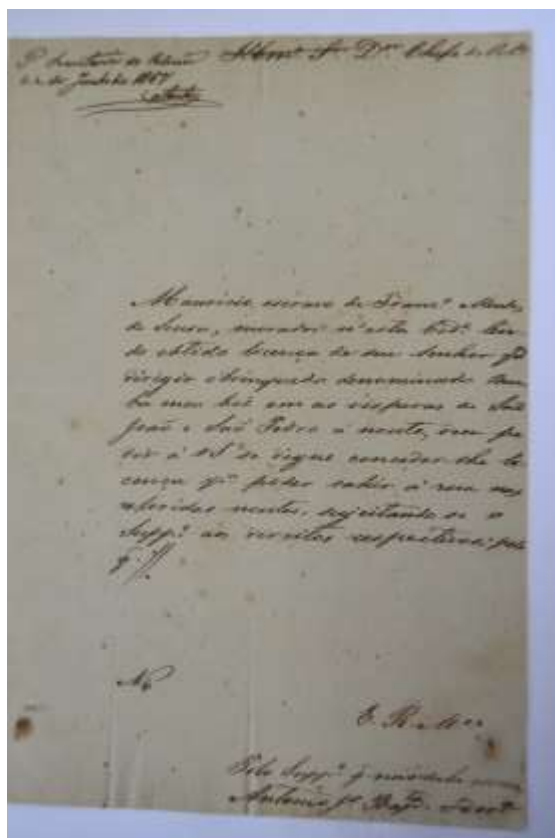 P. Secretaria de Policia
de Junho de 1867
Illmo. Sr. Dor. Chefe de
Mauricio escravo de Franco. Mendes
de Souza, morador n'esta Cide. ten-
do obtido licença de seu Senhor pa.
dirigir o brinquedo denominado bum
ba meu boi em as vesperas de São
João e São Pedro á noute, vem pe
dir á VSa. se digne conceder-lhe li
cença pa. poder sahir á rua nas
referidas noutes, sujeitando-se o
Suppe. aos direitos respectivos; pelo
q. //
E. R. Mce.
Pelo Suppe. q. não sabe escrever
Antonio Je. Bapta.